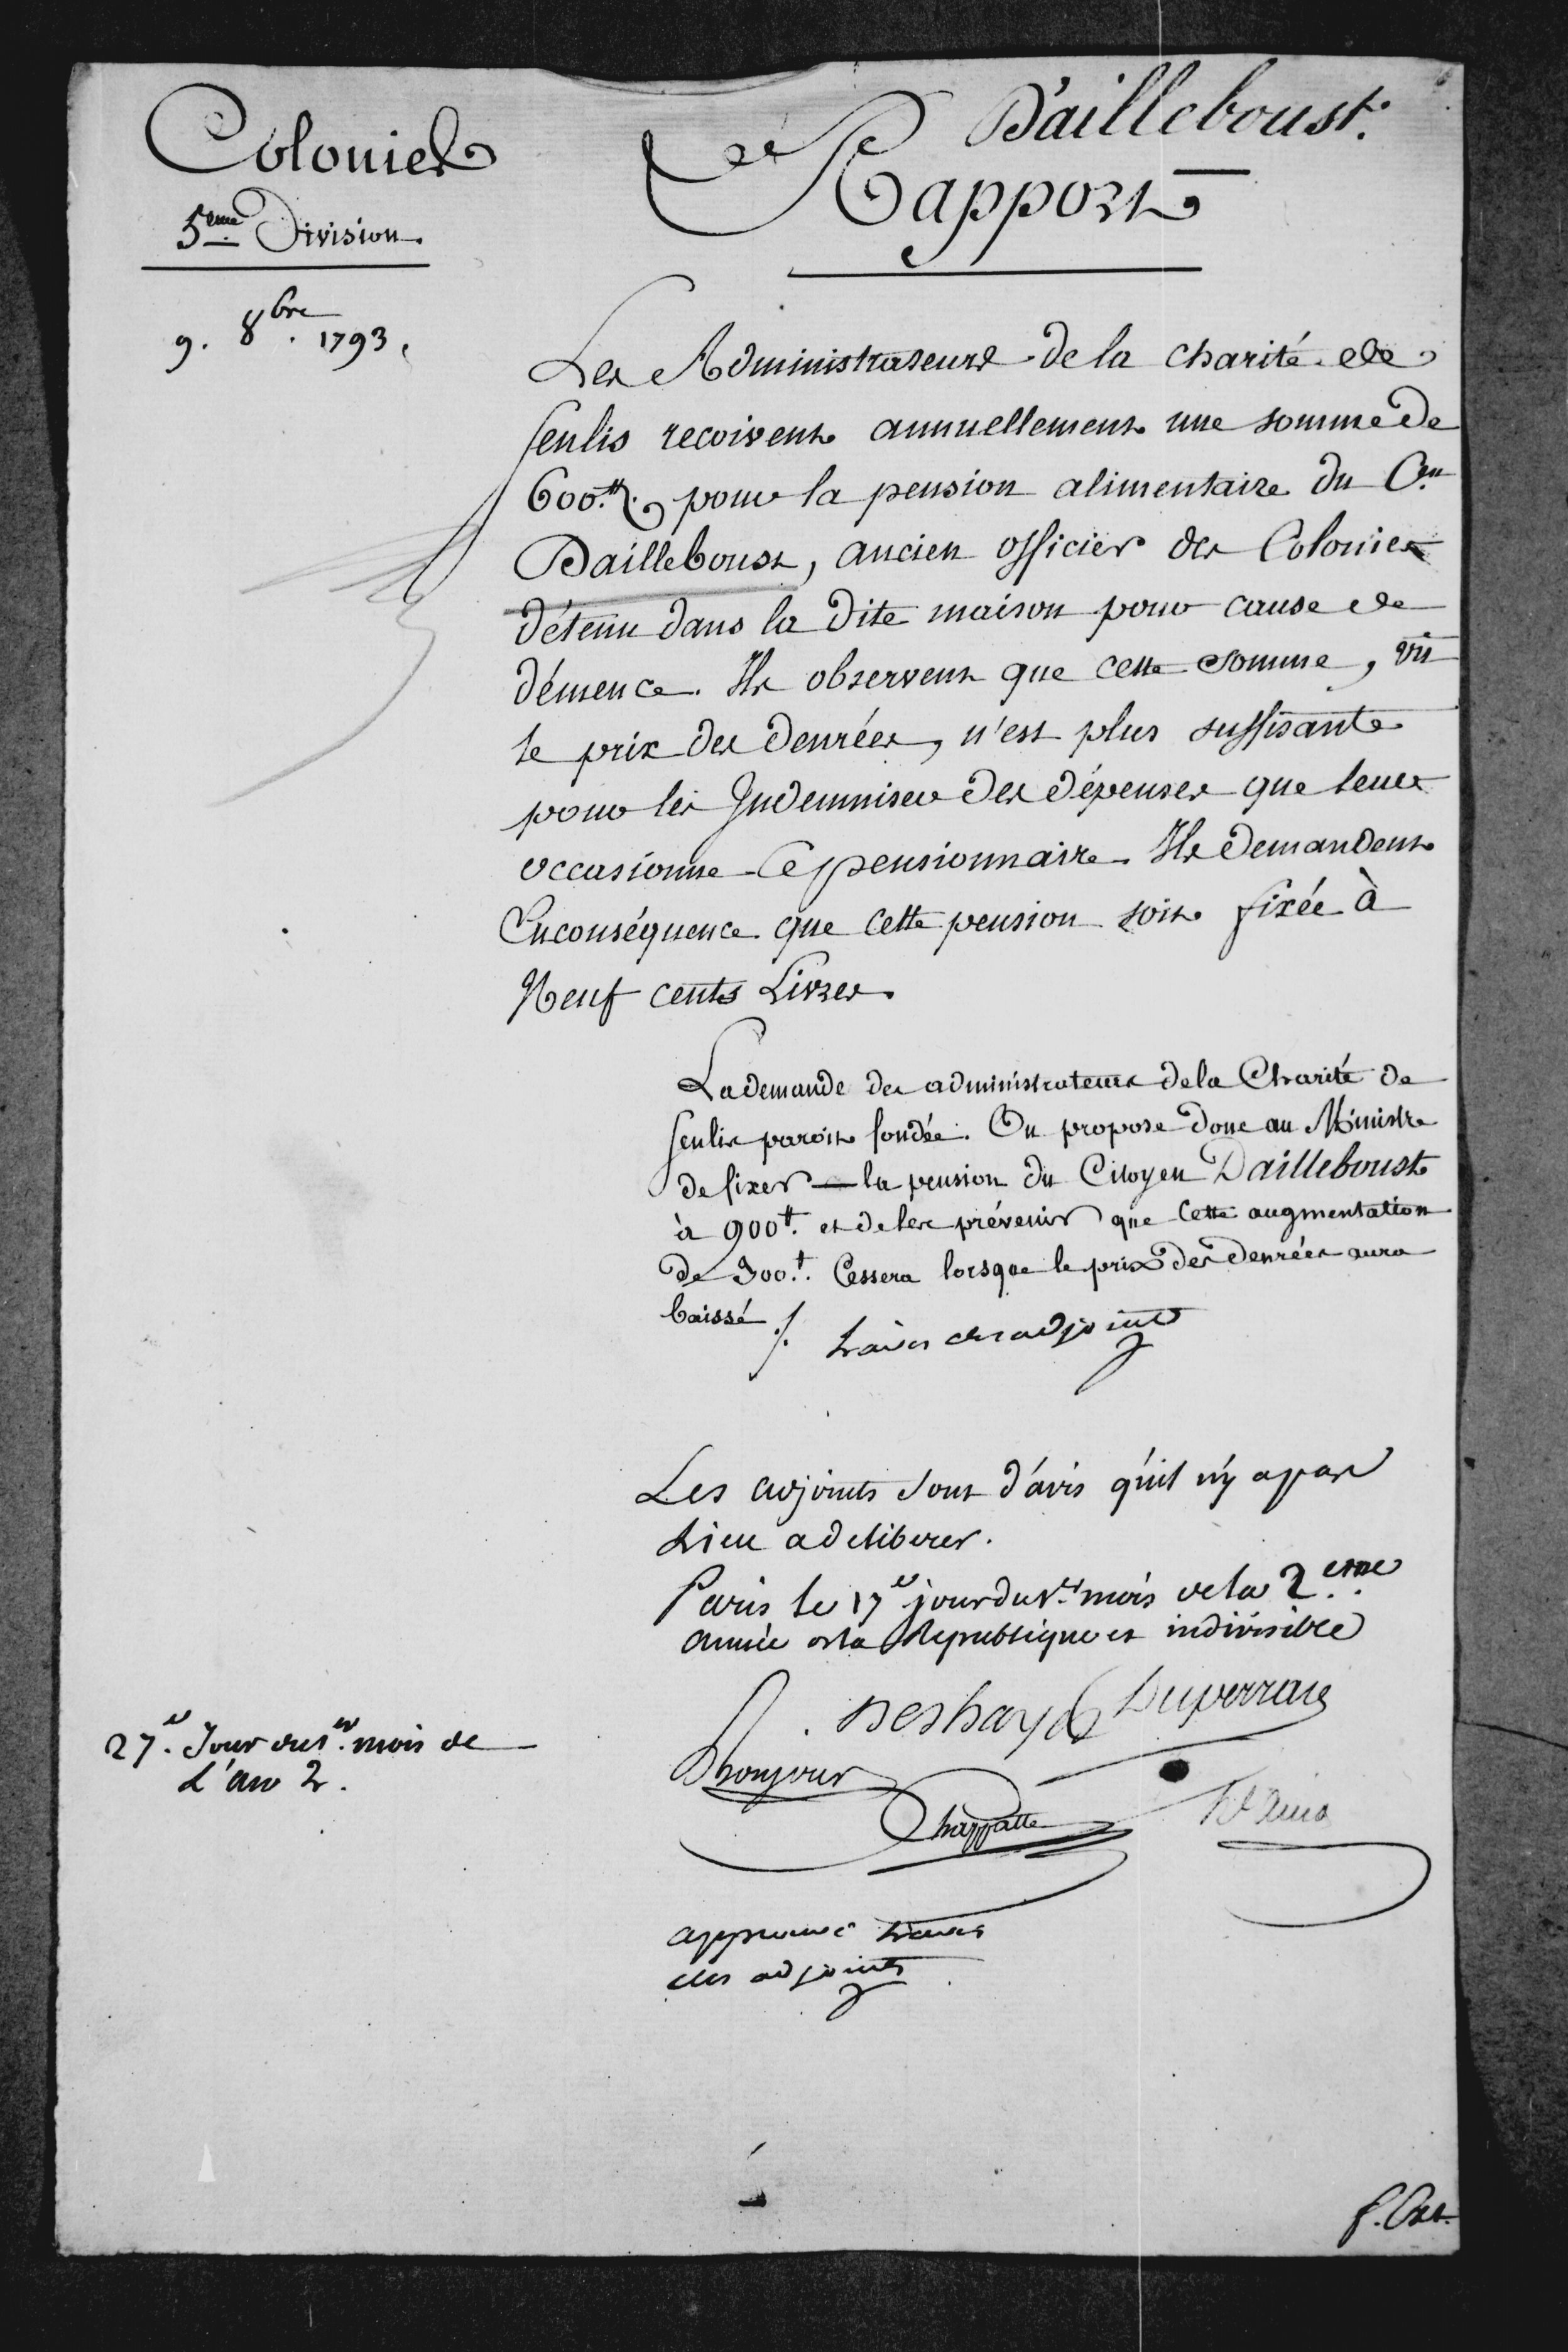 Colonies
5eme Division.
9. 8bre. 1793.
D'ailleboust.
Rapport
Les Administrateurs de la charité de
Senlis recoivent annuellement une somme de
600.tt pour la pension alimentaire du Cen
Dailleboust, ancien officier des Colonies
détenu dans la dite maison pour cause de
démence. Ils observent que cette somme, vû
le prix des denrées, n'est plus suffisante
pour les Indemniser des dépenses que leur
occasionne ce pensionnaire. Ils demandent
Enconséquence que cette pension soit fixée à
Neuf cents Livres.
La demande des administrateurs de la Charité de
Senlis paroit fondée. On propose donc au Ministre
de fixer la pension du Citoyen Dailleboust
à 900t. et de les prévenir que cette augmentation
de 300.t. Cessera lorsque le prix des denrées aura
baissé ./.
L'avis des adjoints
Les adjoints sont d'avis qu'il n'y a pas
Lieu a deliberer.
Paris le 17e jour du 1er mois de la 2.eme
année de la Republique et indivisible
Deshayes Duverrans
Bonjour
Chappatte
27.e Jour du 1.er mois de
L'an 2.
approuvé L'avis
des adjoints